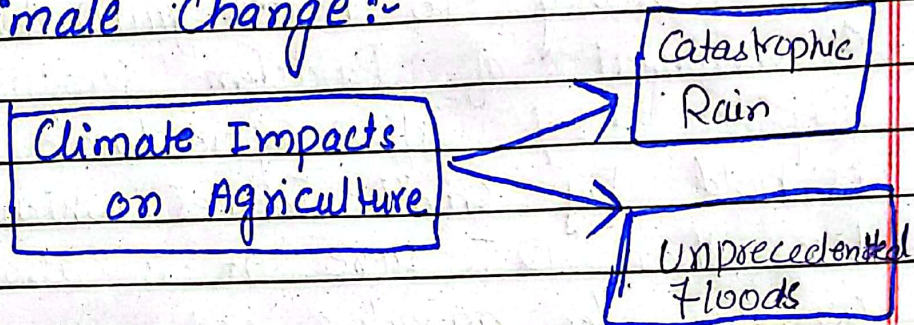 mate Change:-
Climate Impacts
on Agriculture
Catastrophic
Rain
Unprecedented
Floods